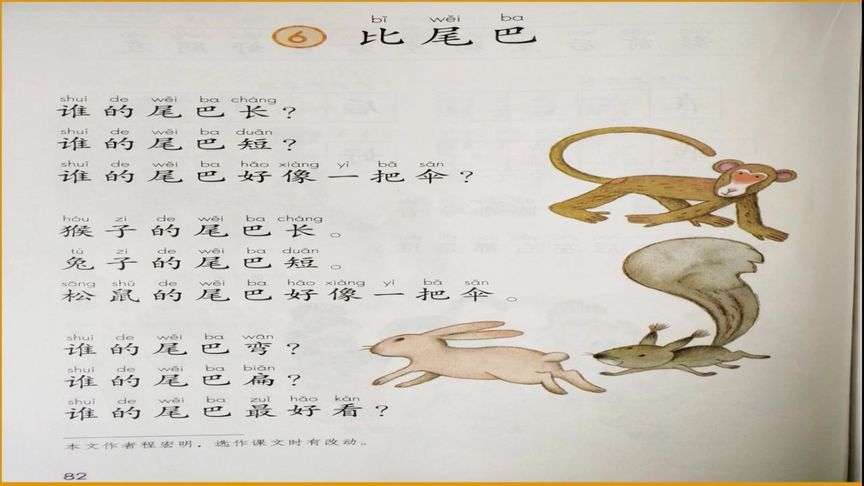 bǐ wěi ba
6 比尾巴
shuí de wěi ba cháng
谁的尾巴长？
shuí de wěi ba duǎn
谁的尾巴短？
shuí de wěi ba hǎo xiàng yì bǎ sǎn
谁的尾巴好像一把伞？
hóu zi de wěi ba cháng
猴子的尾巴长。
tù zi de wěi ba duǎn
兔子的尾巴短。
sōng shǔ de wěi ba hǎo xiàng yì bǎ sǎn
松鼠的尾巴好像一把伞。
shuí de wěi ba wān
谁的尾巴弯？
shuí de wěi ba biǎn
谁的尾巴扁？
shuí de wěi ba zuì hǎo kàn
谁的尾巴最好看？
本文作者程宏明，选作课文时有改动。
82